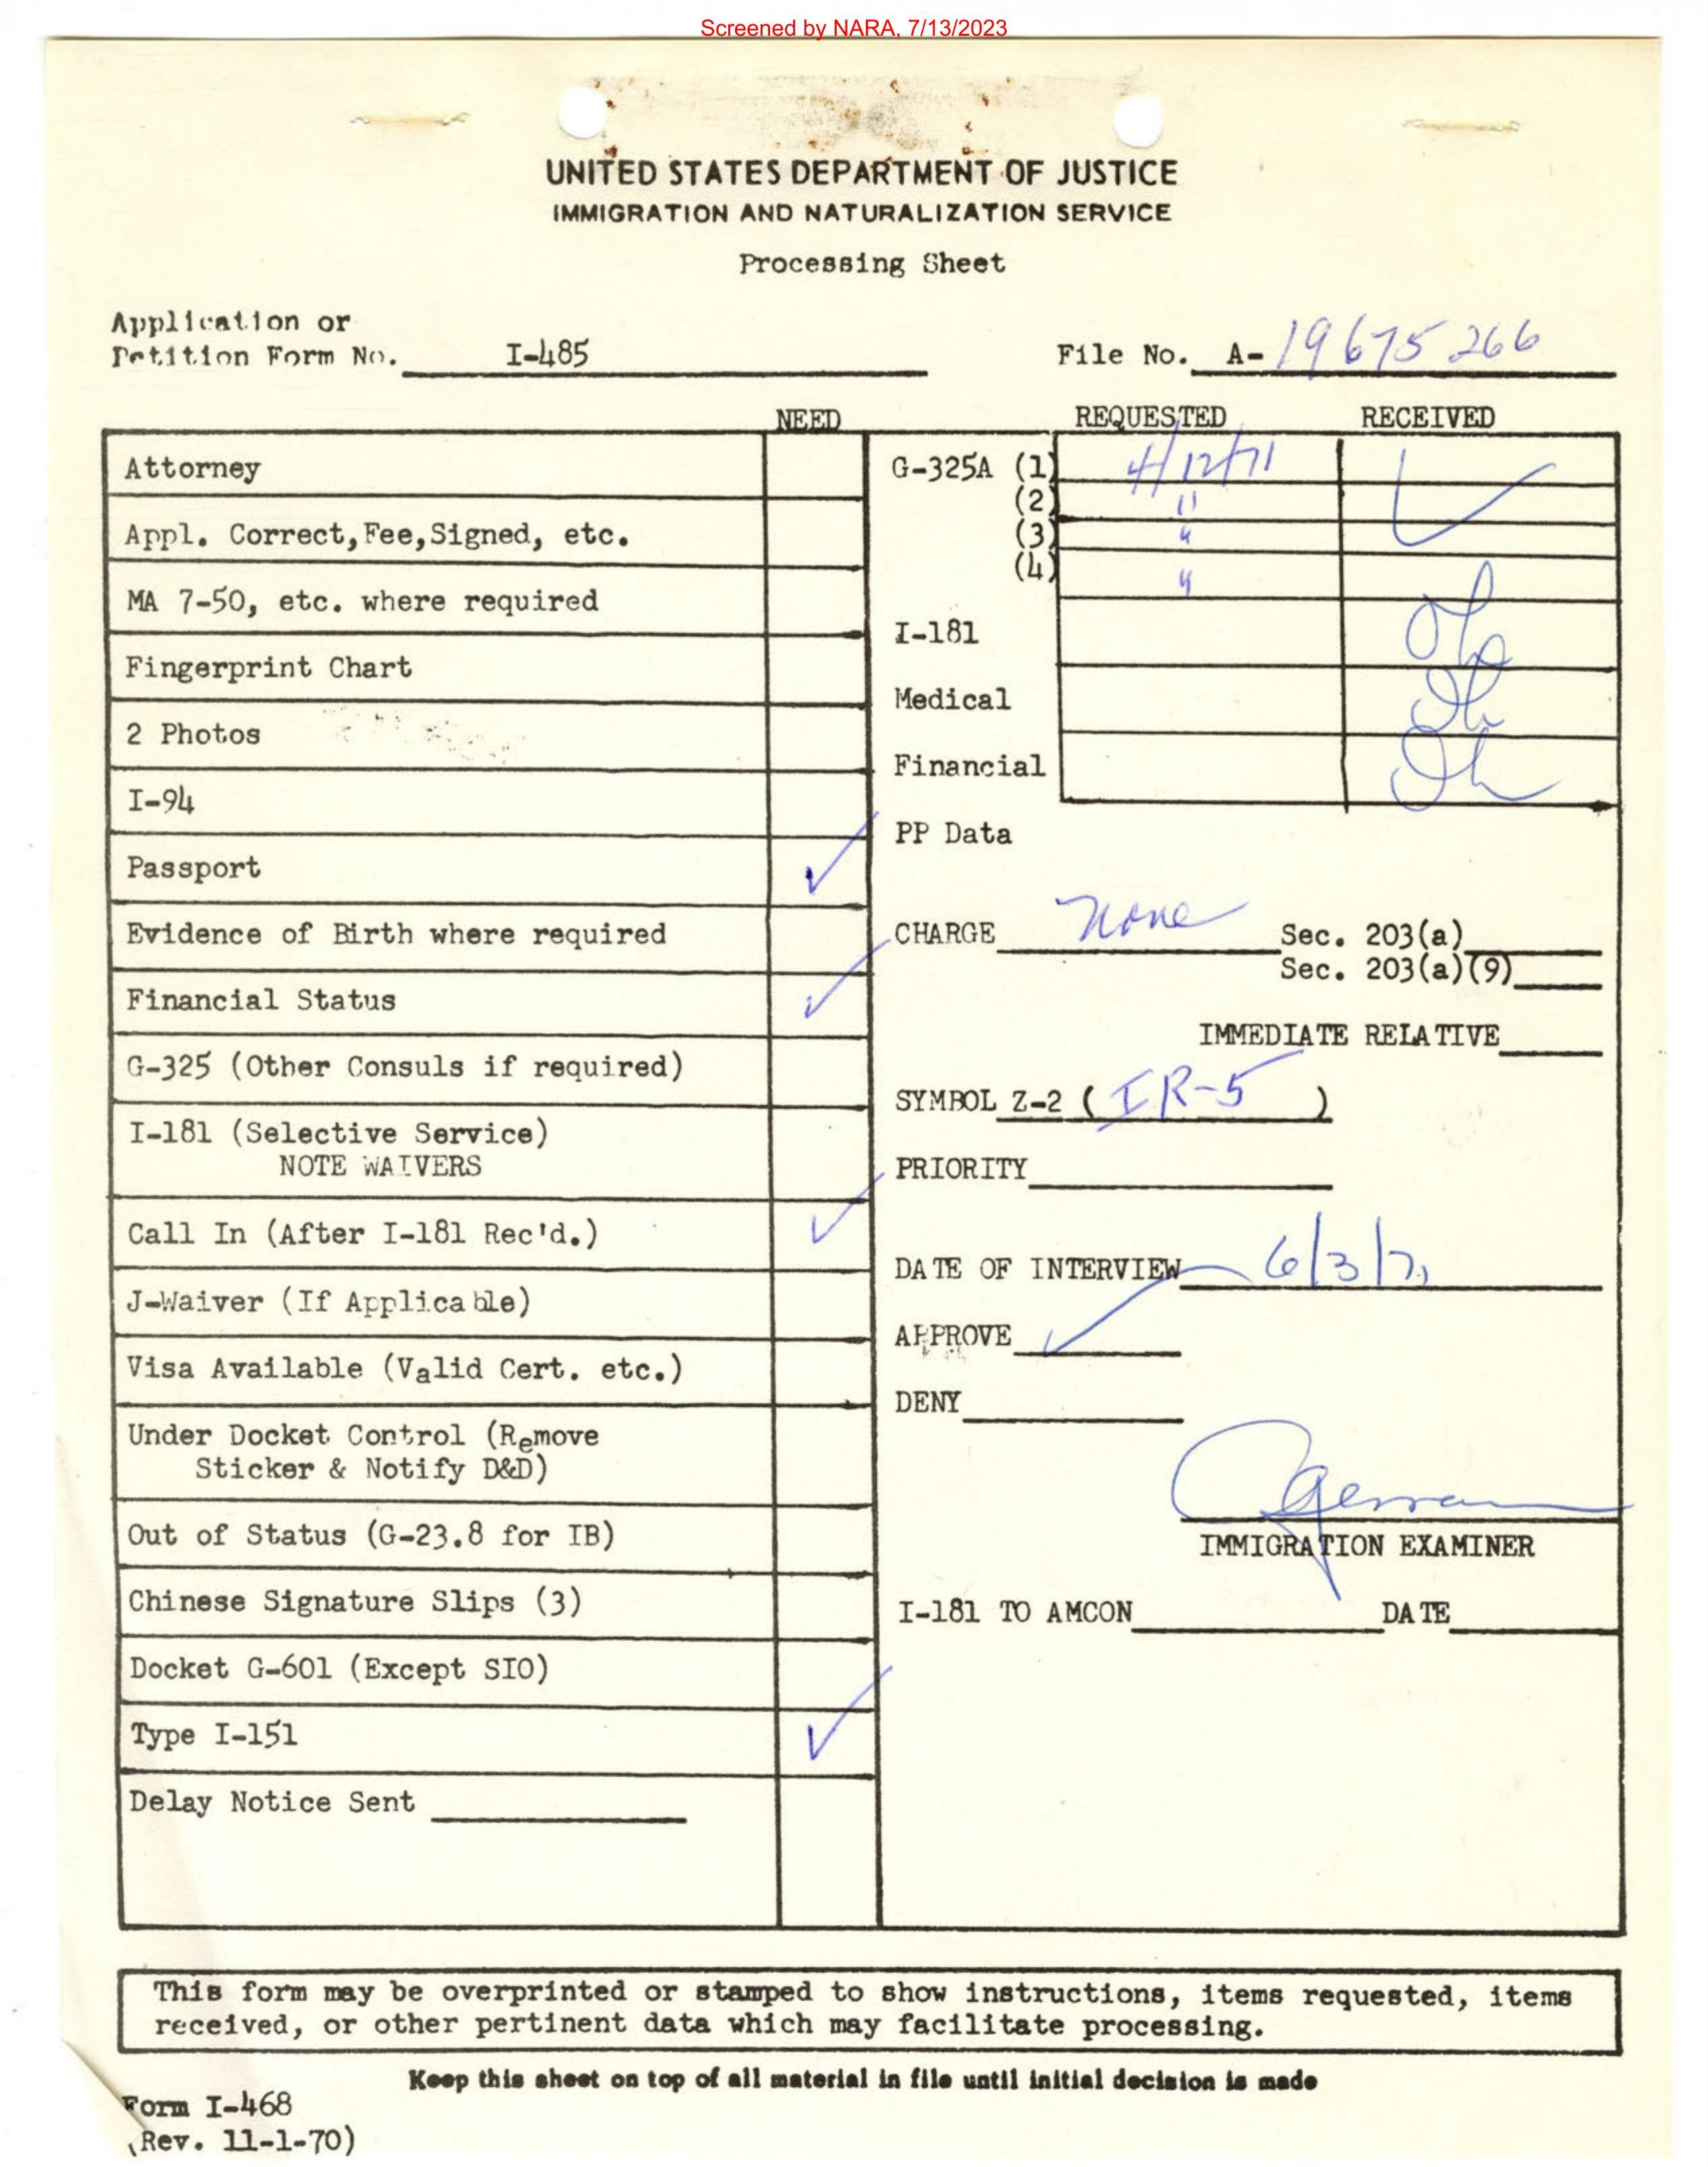 Screened by NARA, 7/13/2023
UNITED STATES DEPARTMENT OF JUSTICE
IMMIGRATION AND NATURALIZATION SERVICE
Processing Sheet
Application or
Petition Form No. I-485
File No. A-19675266
NEED
REQUESTED RECEIVED
Attorney
Appl. Correct,Fee,Signed, etc.
MA 7-50, etc. where required
Fingerprint Chart
2 Photos
I-94
Passport ✓
Evidence of Birth where required
Financial Status ✓
G-325 (Other Consuls if required)
I-181 (Selective Service)
NOTE WAIVERS
Call In (After I-181 Rec'd.) ✓
J-Waiver (If Applicable)
Visa Available (Valid Cert. etc.)
Under Docket Control (Remove
Sticker & Notify D&D)
Out of Status (G-23.8 for IB)
Chinese Signature Slips (3)
Docket G-601 (Except SIO)
Type I-151 ✓
Delay Notice Sent
G-325A (1) 4/12/71 ✓
(2) "
(3) "
(4) "
I-181
Medical
Financial
PP Data
CHARGE None Sec. 203(a)
Sec. 203(a)(9)
IMMEDIATE RELATIVE
SYMBOL Z-2 ( IR-5 )
PRIORITY
DATE OF INTERVIEW 6/3/71
APPROVE ✓
DENY
IMMIGRATION EXAMINER
I-181 TO AMCON DATE
This form may be overprinted or stamped to show instructions, items requested, items
received, or other pertinent data which may facilitate processing.
Keep this sheet on top of all material in file until initial decision is made
Form I-468
(Rev. 11-1-70)